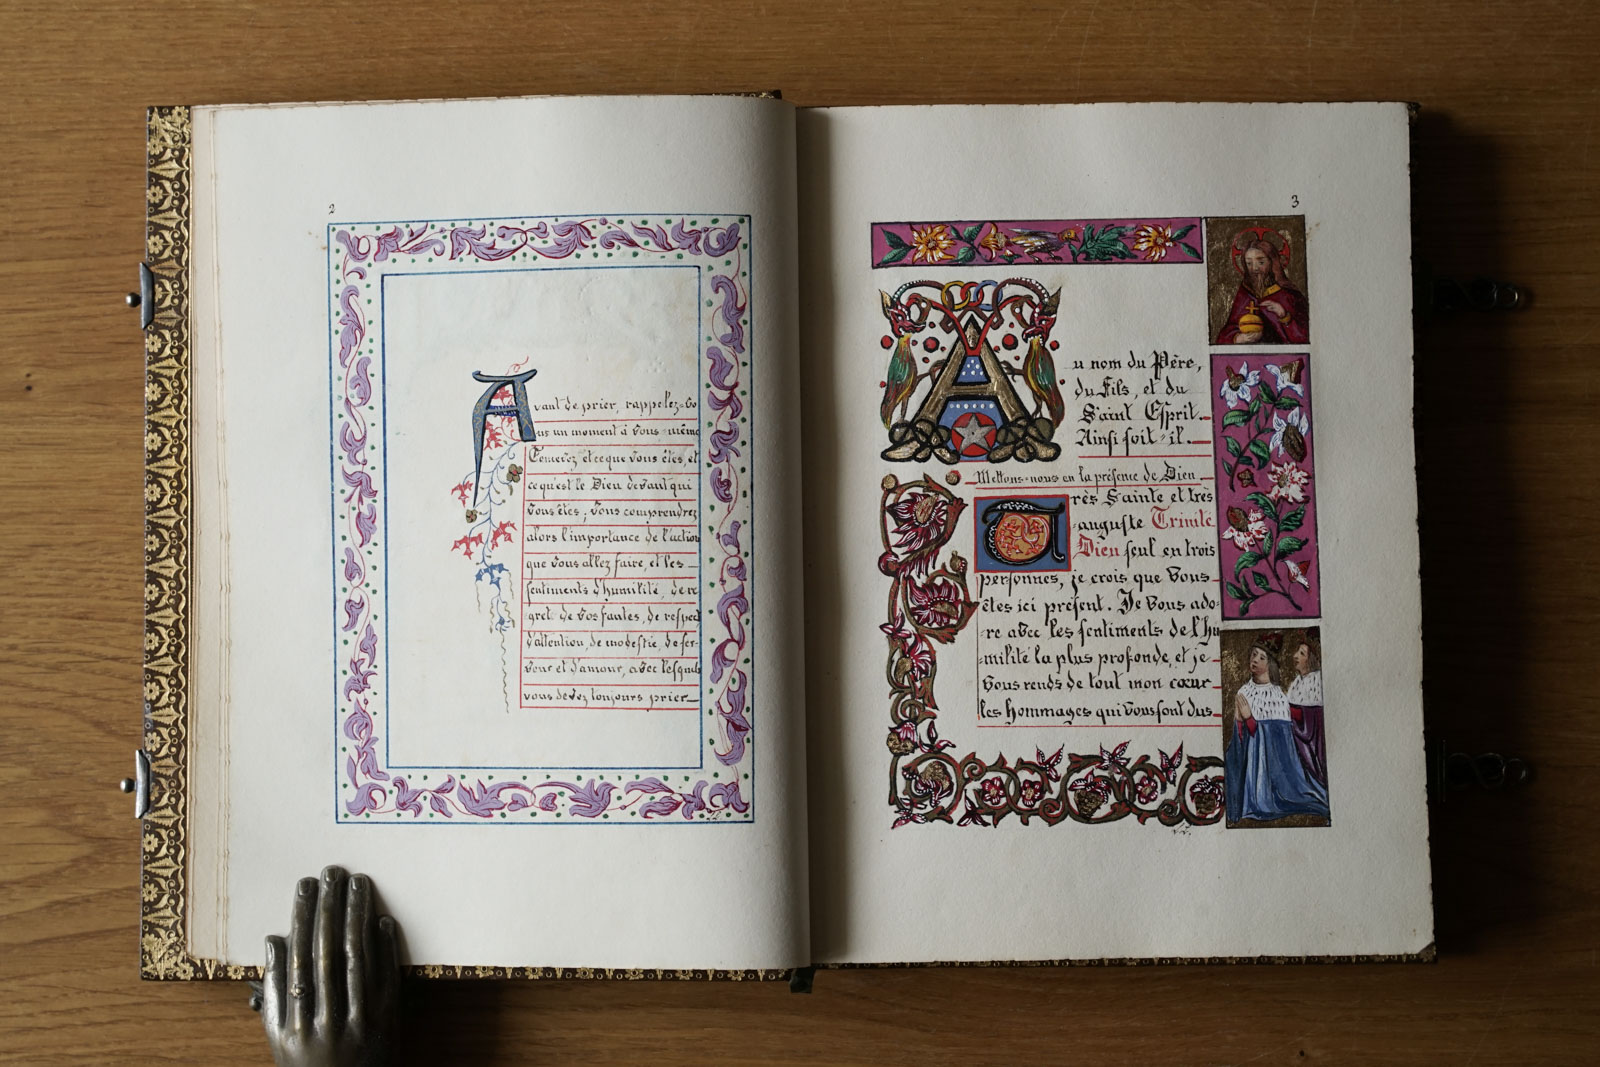 2
Avant de prier, rappelez-vo
us un moment à vous-même
et ce que vous êtes, et
ce qu'est le Dieu devant qui
vous êtes; vous comprendrez
alors l'importance de l'action
que vous allez faire, et les
sentiments d'humilité, de re
gret de vos fautes, de respect
d'attention, de modestie, de fer-
veur et d'amour, avec lesquels
vous devez toujours prier
3
Au nom du Père,
du Fils, et du
Saint Esprit.
Ainsi soit-il.
Mettons-nous en la présence de Dieu
Très Sainte et très
auguste Trinité
Dieu seul en trois
personnes, je crois que vous
êtes ici présent. Je vous ado-
re avec les sentiments de l'hu
-milité la plus profonde, et je
vous rends de tout mon cœur
les hommages qui vous sont dus